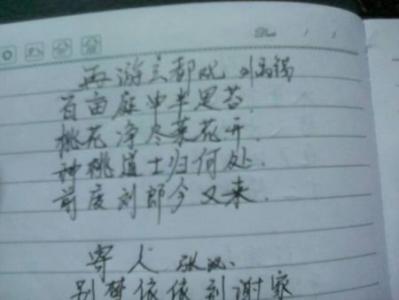 Date / /
再游玄都观 刘禹锡
百亩庭中半是苔.
桃花净尽菜花开.
种桃道士归何处.
前度刘郎今又来.
寄人 张泌.
别梦依依到谢家